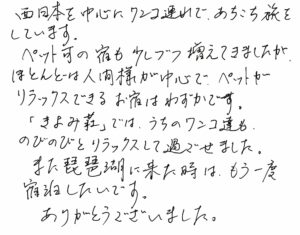 西日本を中心にワンコ連れで、あちこち旅を
しています。
ペット可の宿も少しづつ増えてきましたが
ほとんどは人間様が中心で ペットが
リラックスできるお宿はわずかです。
「きよみ荘」では、うちのワンコ達も、
のびのびとリラックスして過ごせました。
また琵琶湖に来た時は、もう一度
宿泊したいです。
ありがとうございました。